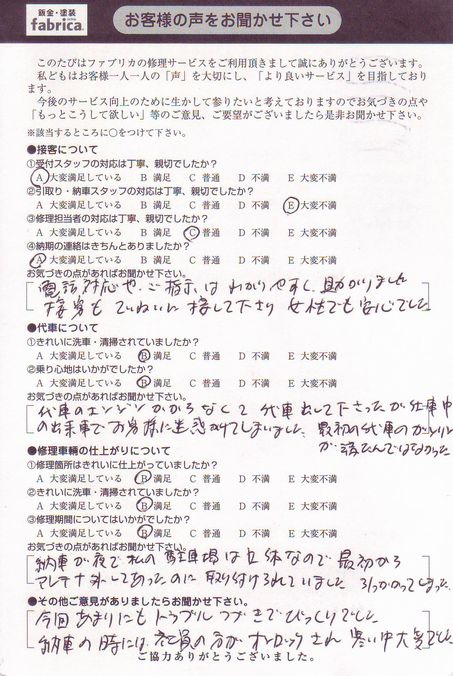 鈑金・塗装
fabrica.
お客様の声をお聞かせ下さい
このたびはファブリカの修理サービスをご利用頂きまして誠にありがとうございます。
私どもはお客様一人一人の「声」を大切にし、「より良いサービス」を目指しており
ます。
今後のサービス向上のために生かして参りたいと考えておりますのでお気づきの点や
「もっとこうして欲しい」等のご意見、ご要望がございましたら是非お聞かせ下さい。
※該当するところに○をつけて下さい。
●接客について
①受付スタッフの対応は丁寧、親切でしたか?
A 大変満足している B 満足 C 普通 D 不満 E 大変不満
②引取り・納車スタッフの対応は丁寧、親切でしたか?
A 大変満足している B 満足 C 普通 D 不満 E 大変不満
③修理担当者の対応は丁寧、親切でしたか?
A 大変満足している B 満足 C 普通 D 不満 E 大変不満
④納期の連絡はきちんとありましたか?
A 大変満足している B 満足 C 普通 D 不満 E 大変不満
お気づきの点があればお聞かせ下さい。
電話対応や、ご指示はわかりやすく、助かりました
接客もていねいに接して下さり 女性でも安心でした
●代車について
①きれいに洗車・清掃されていましたか?
A 大変満足している B 満足 C 普通 D 不満 E 大変不満
②乗り心地はいかがでしたか?
A 大変満足している B 満足 C 普通 D 不満 E 大変不満
お気づきの点があればお聞かせ下さい。
代車のエンジンかからなくて 代車出して下さったが 仕事中
の出来事でお客様に迷惑かけてしまいました。最初の代車のガソリン
が 満たんではなかった
●修理車輌の仕上がりについて
①修理箇所はきれいに仕上がっていましたか?
A 大変満足している B 満足 C 普通 D 不満 E 大変不満
②きれいに洗車・清掃されていましたか?
A 大変満足している B 満足 C 普通 D 不満 E 大変不満
③修理期間についてはいかがでしたか?
A 大変満足している B 満足 C 普通 D 不満 E 大変不満
お気づきの点があればお聞かせ下さい。
納車が夜で私の駐車場は立体なので 最初から
アンテナ外してあったのに 取り付けられていました ひっかかってしまった
●その他ご意見がありましたらお聞かせ下さい。
今回 あまりにもトラブルつづきでびっくりでした
納車の時には 社員の方が され 寒い中大変でした
ご協力ありがとうございました。